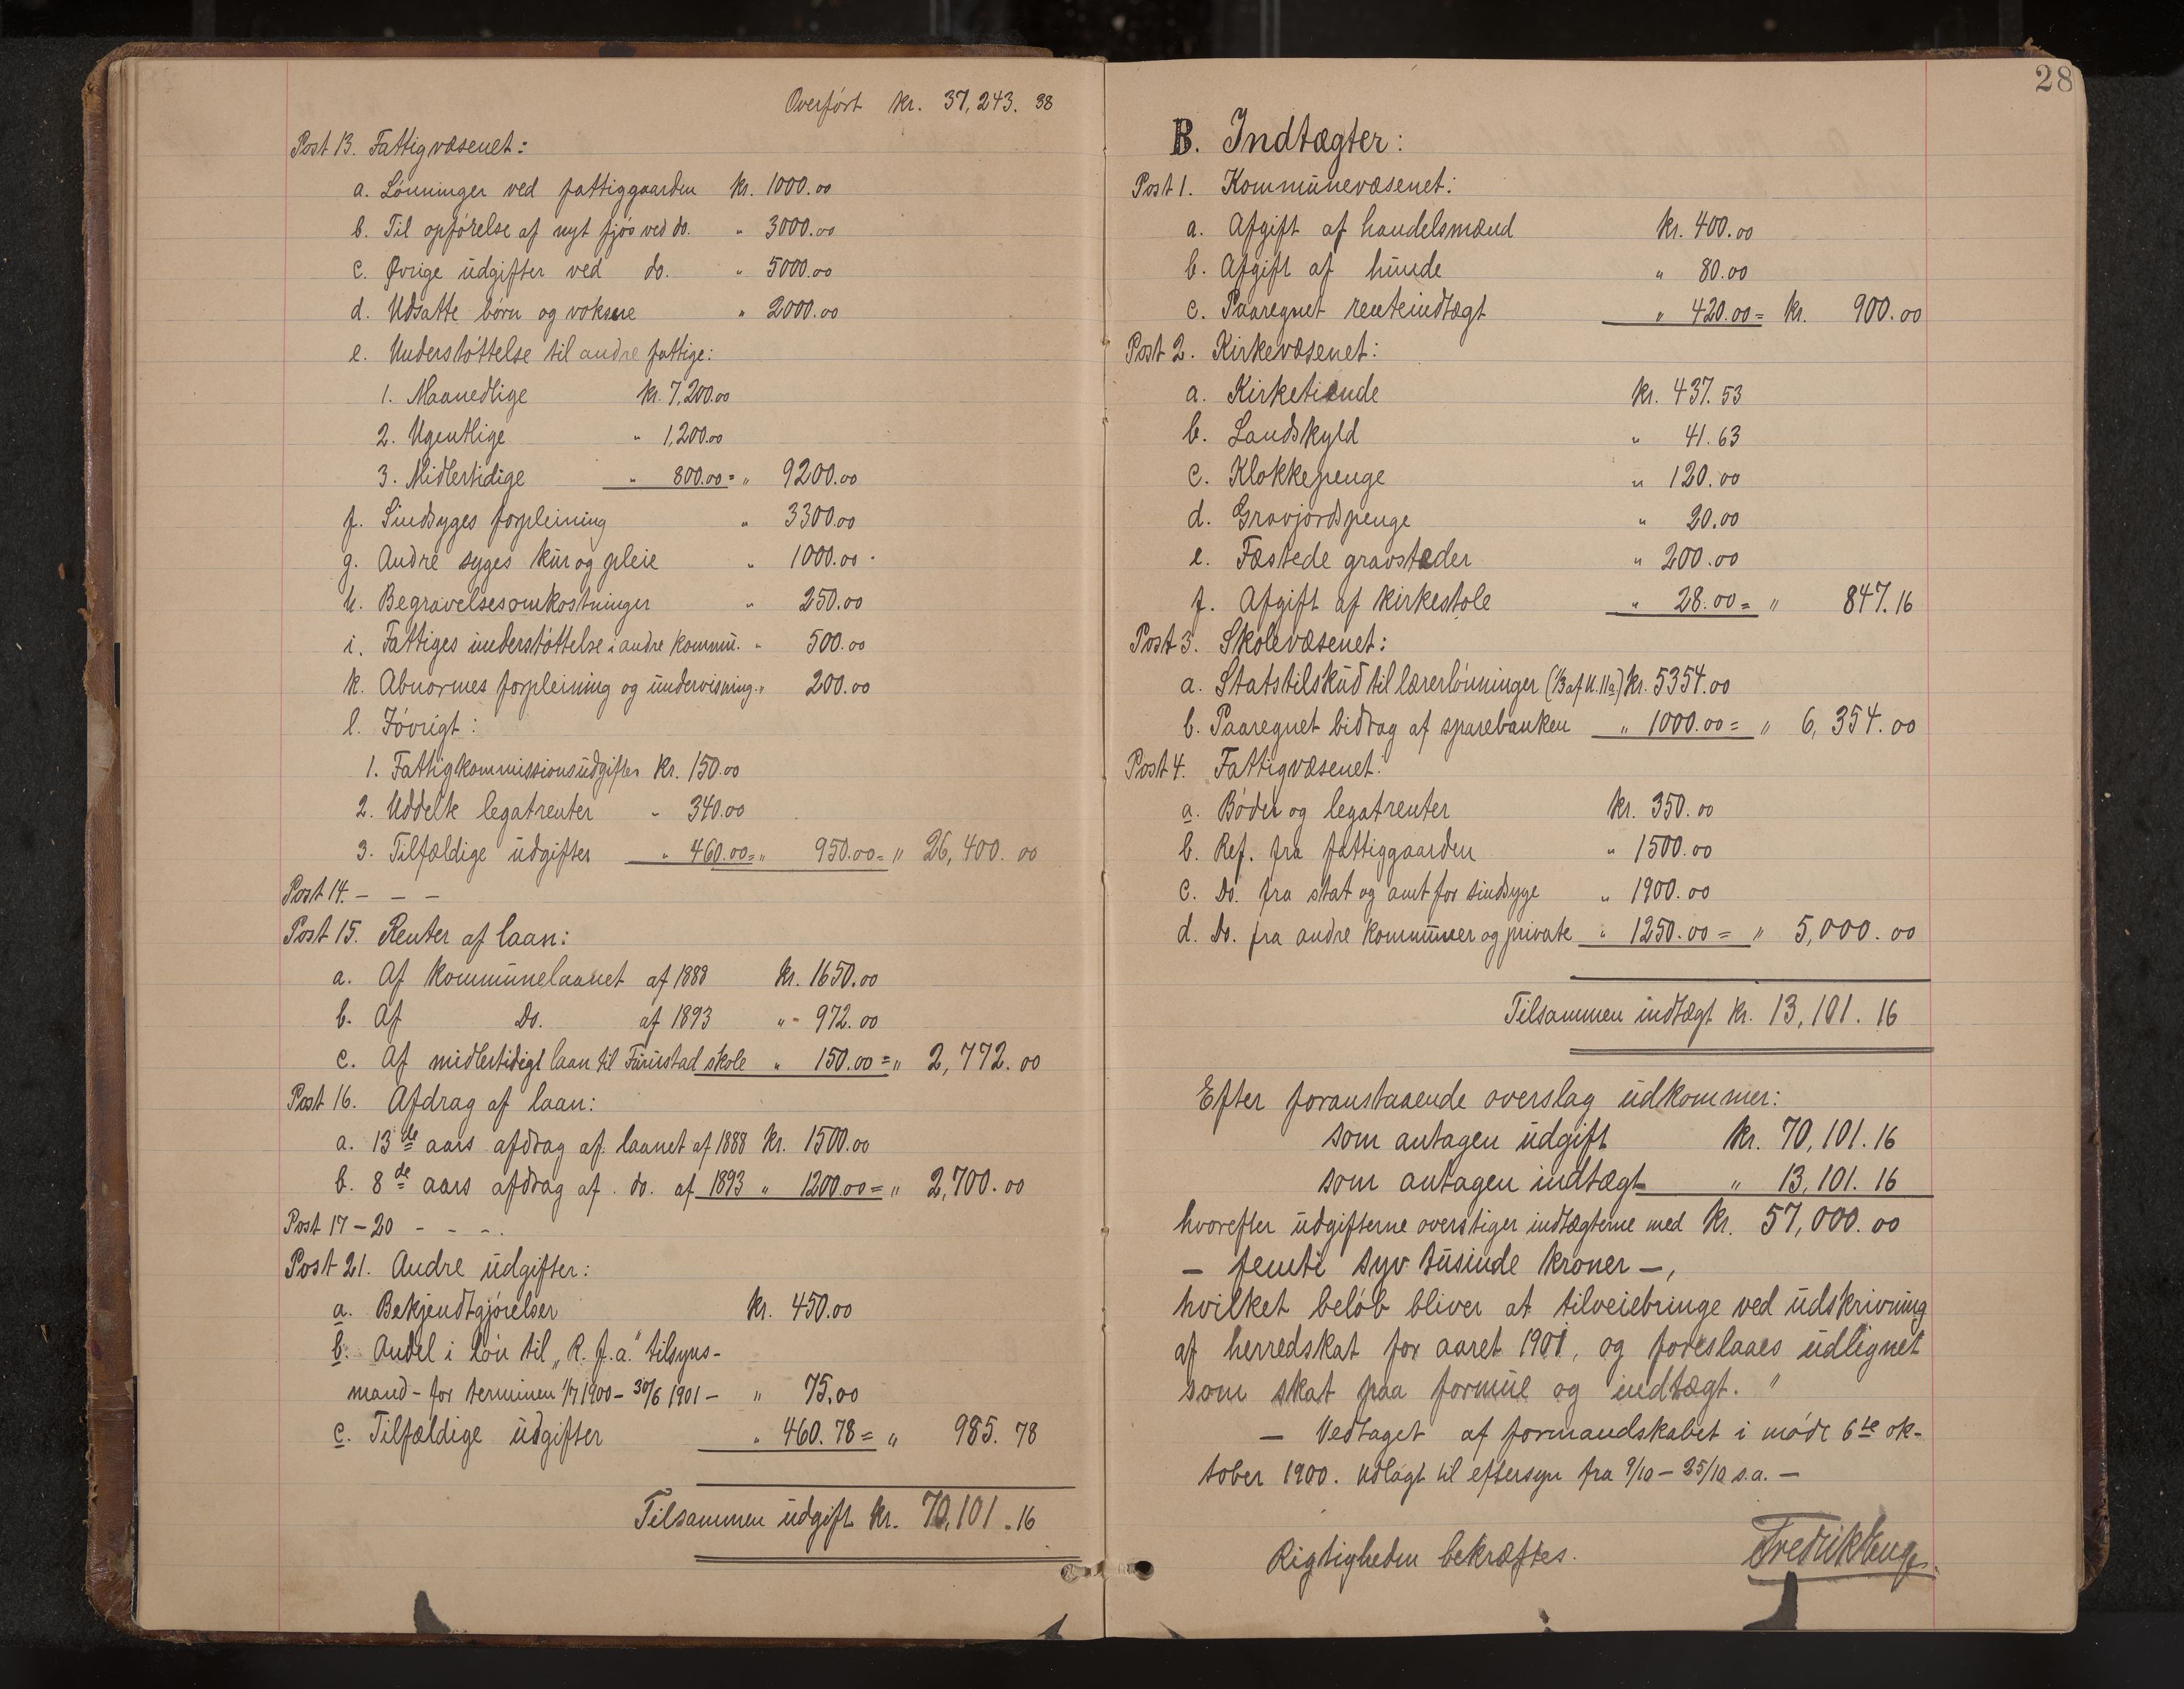 Overført kr. 37,243. 38
Post 13. Fattigvæsenet:
a. Lønninger ved fattiggaarden kr. 1000.00
b. Til opførelse af nyt fjøs ved do. " 3000.00
c. Øvrige udgifter ved do. " 5000.00
d. Udsatte børn og voksne " 2000.00
e. Understøttelse til andre fattige:
1. Maanedlige kr. 7,200.00
2. Ugentlige " 1,200.00
3. Midlertidige " 800.00 = " 9200.00
f. Sindsyges forpleining " 3300.00
g. Andre syges kur og pleie " 1000.00
h. Begravelsesomkostninger " 250.00
i. Fattiges understøttelse i andre kommu. " 500.00
k. Abnormes forpleining og undervisning. " 200.00
l. Iøvrigt:
1. Fattigkommissionsudgifter kr. 150.00
2. Uddelte legatrenter " 340.00
3. Tilfældige udgifter " 460.00 = " 950.00 = " 26,400. 00
Post 14. - - -
Post 15. Renter af laan:
a. Af kommunelaanet af 1888 kr. 1650.00
b. Af do. af 1893 " - 972.00
c. Af midlertidigt laan til Furustad skole " 150.00 = " 2,772. 00
Post 16. Afdrag af laan:
a. 13de aars afdrag af laanet af 1888 kr. 1500.00
b. 8de aars afdrag af do. af 1893 " 1200.00 = " 2,700. 00
Post 17 - 20 - - - .
Post 21. Andre udgifter:
a. Bekjendtgjørelser kr. 450.00
b. Andel i løn til „R. f. a." tilsyns-
mand - for terminen 1/7 1900 - 30/6 1901 - " 75.00
c. Tilfældige udgifter " 460. 78 = " 985. 78
Tilsammen udgift kr. 70,101. 16
28
B. Indtægter:
Post 1. Kommunevæsenet:
a. Afgift af handelsmænd kr. 400.00
b. Afgift af hunde " 80.00
c. Paaregnet renteindtægt " 420.00 = kr. 900.00
Post 2. Kirkevæsenet:
a. Kirketiende kr. 437. 53
b. Landskyld " 41. 63
c. Klokkepenge " 120.00
d. Gravjordspenge " 20.00
e. Fæstede gravsteder " 200.00
f. Afgift af kirkestole " 28.00 = " 847. 16
Post 3. Skolevæsenet:
a. Statstilskud til lærerlønninger (1/3 af U. 11a) kr. 5354.00
b. Paaregnet bidrag af sparebanken " 1000.00 = " 6,354.00
Post 4. Fattigvæsenet:
a. Bøder og legatrenter kr. 350.00
b. Ref. fra fattiggaarden " 1500.00
c. Do. fra stat og amt for sindsyge " 1900.00
d. Do. fra andre kommuner og private " 1250.00 = " 5,000.00
Tilsammen indtægt kr. 13,101. 16
Efter foranstaaende overslag udkommer:
som antagen udgift kr. 70,101. 16
som antagen indtægt " 13,101. 16
hvorefter udgifterne overstiger indtægterne med kr. 57,000.00
- femti syv tusinde kroner -,
hvilket beløb bliver at tilveiebringe ved udskrivning
af herredskat for aaret 1901, og foreslaaes udlignet
som skat paa formue og indtægt. "
- Vedtaget af formandskabet i møde 6te ok-
tober 1900. Udlagt til eftersyn fra 9/10 - 25/10 s.a. -
Rigtigheden bekræftes.